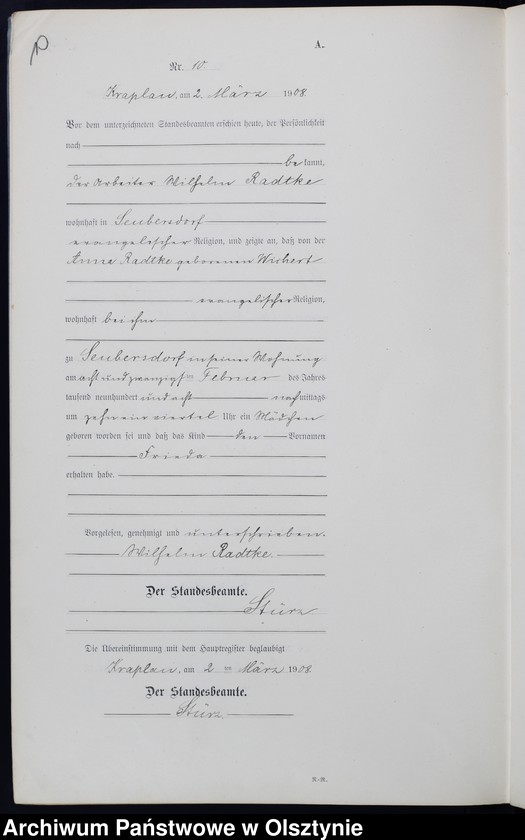 10
A.
Nr. 10
Kraplau, am 2. März 1908
Vor dem unterzeichneten Standesbeamten erschien heute, der Persönlichkeit
nach
be kannt,
der Arbeiter Wilhelm Radtke
wohnhaft in Seubersdorf
evangelischer Religion, und zeigte an, daß von der
Anna Radtke geborenen Wichert
evangelischer Religion,
wohnhaft bei ihm
zu Seubersdorf in seiner Wohnung
am acht und zwanzigsten Februer des Jahres
tausend neunhundert und acht nachmittags
um zehn ein viertel Uhr ein Mädchen
geboren worden sei und daß das Kind den Vornamen
Frieda
erhalten habe.
Vorgelesen, genehmigt und unterschrieben.
Wilhelm Radtke.
Der Standesbeamte.
Stürz
Die Übereinstimmung mit dem Hauptregister beglaubigt
Kraplau, am 2 ten März 1908
Der Standesbeamte.
Stürz.
R.-R.
Archiwum Państwowe w Olsztynie